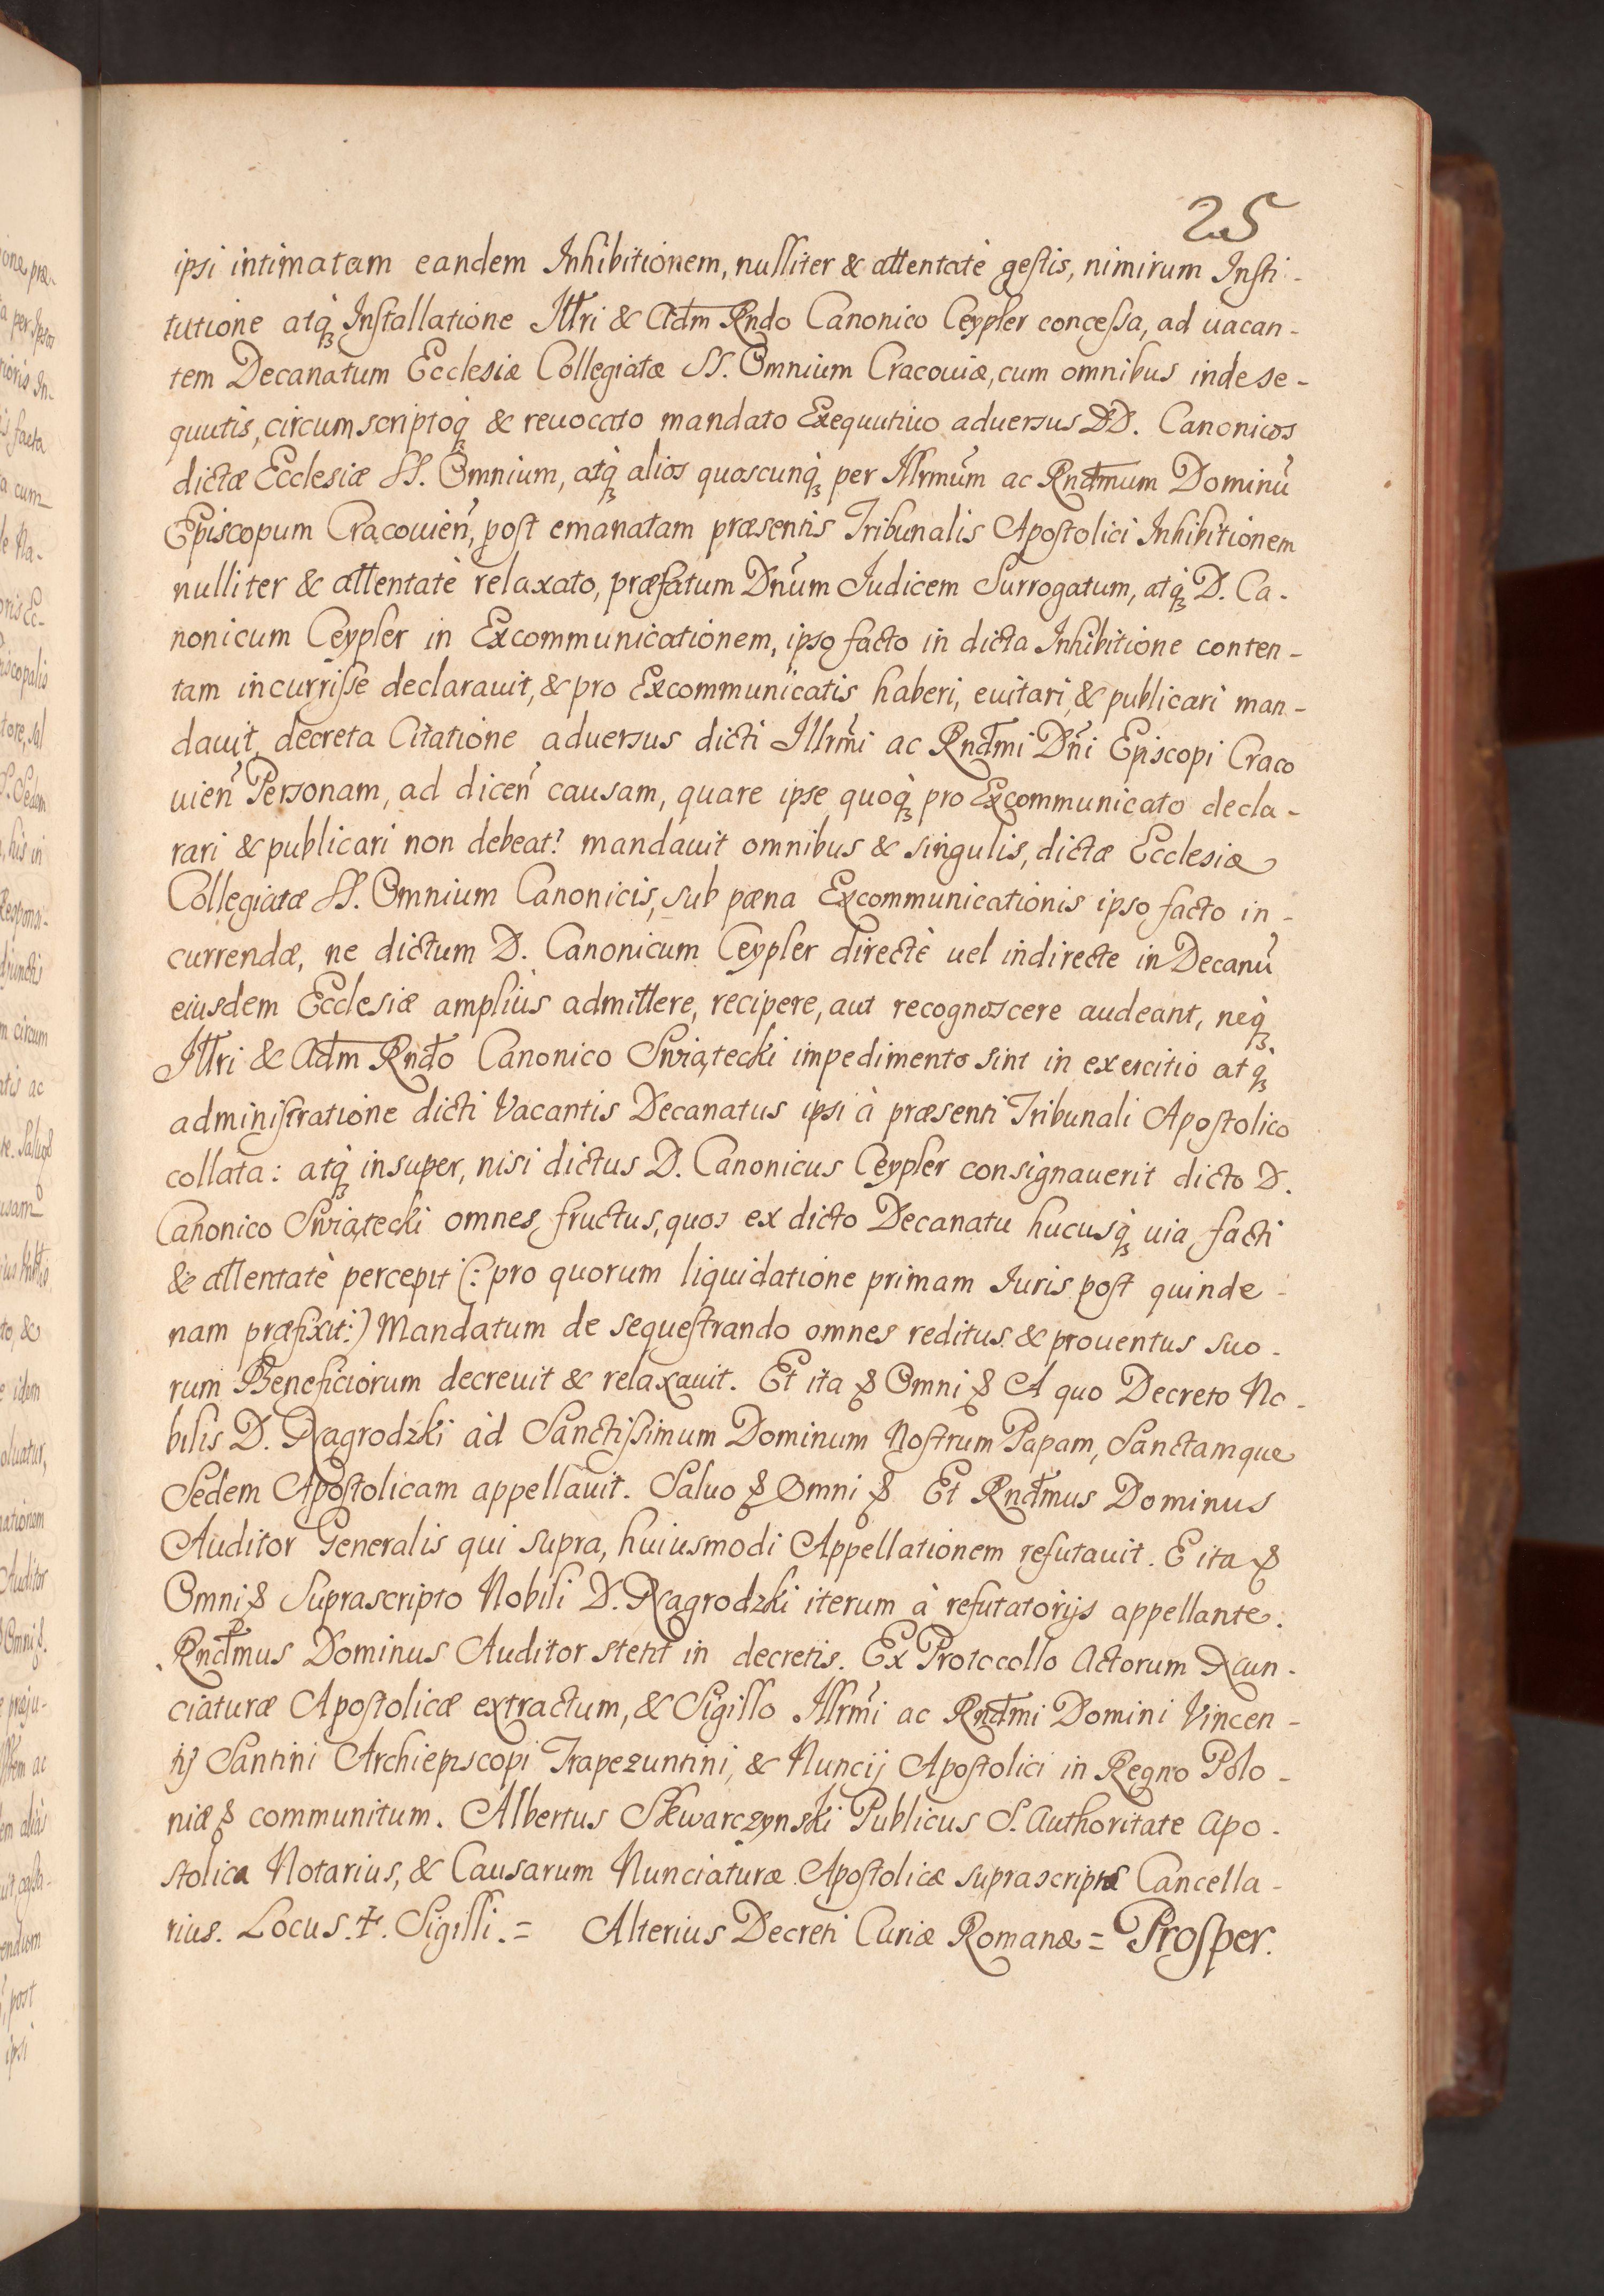 25
ipsi intimatam eandem Inhibitionem, nulliter & attentatè gestis, nimirum Insti-
tutione atq̀ꝫ Installatione Illri & Adm Rndo Canonico Ceypler concessa, ad uacan-
tem Decanatum Ecclesiæ Collegiatæ SS. Omnium Cracouiæ, cum omnibus inde se-
quutis, circumscriptoq̀ꝫ & reuocato mandato Exequutiuo aduersus DD. Canonicos
dictæ Ecclesiæ SS. Omnium, atq̀ꝫ alios quoscunq̀ꝫ per Illrmũm ac Rndmum Dominũ
Episcopum Cracouień, post emanatam præsentis Tribunalis Apostolici Inhibitionem
nulliter & attentatè relaxato, præfatum Dnũm Iudicem Surrogatum, atq̀ꝫ D. Ca-
nonicum Ceypler in Excommunicationem, ipso facto in dicta Inhibitione conten-
tam incurrisse declarauit, & pro Excommunicatis haberi, euitari, & publicari man-
dauit, decreta Citatione aduersus dicti Illrmĩ ac Rndmi Dnĩ Episcopi Craco
uień Personam, ad diceń causam, quare ipse quoq̀ꝫ pro Excommunicato decla-
rari & publicari non debeat? mandauit omnibus & singulis, dictæ Ecclesiæ
Collegiatæ SS. Omnium Canonicis, sub pæna Excommunicationis ipso facto in-
currendæ, ne dictum D. Canonicum Ceypler directè uel indirecte in Decanũ
eiusdem Ecclesiæ ampliùs admittere, recipere, aut recognoscere audeant, neq̀ꝫ
Illri & Adm Rndo Canonico Swiątecki impedimento sint in exercitio atq̀ꝫ
administratione dicti Vacantis Decanatus ipsi à præsenti Tribunali Apostolico
collata: atq̀ꝫ insuper, nisi dictus D. Canonicus Ceypler consignauerit dicto D.
Canonico Swiątecki omnes fructus, quos ex dicto Decanatu hucusq̀ꝫ uia facti
& attentatè percepit (: pro quorum liquidatione primam Iuris post quinde-
nam præfixit:) Mandatum de sequestrando omnes reditus & prouentus suo-
rum Beneficiorum decreuit & relaxauit. Et ita & Omni & A quo Decreto No-
bilis D. Nagrodzki ad Sanctissimum Dominum Nostrum Papam, Sanctamque
Sedem Apostolicam appellauit. Saluo & Omni & Et Rndmus Dominus
Auditor Generalis qui supra, huiusmodi Appellationem refutauit. E ita &
Omni & Suprascripto Nobili D. Nagrodzki iterum à refutatorijs appellante.
Rndmus Dominus Auditor stetit in decretis. Ex Protocollo Actorum Nun-
ciaturæ Apostolicæ extractum, & Sigillo Illrmĩ ac Rndmi Domini Vincen-
tij Santini Archiepiscopi Trapezuntini, & Nuncij Apostolici in Regno Polo-
niæ & communitum. Albertus Skwarczynski Publicus S. Authoritate Apo-
stolica Notarius, & Causarum Nunciaturæ Apostolicæ suprascriptæ Cancella-
rius. Locus ✝. Sigilli. = Alterius Decreti Curiæ Romanæ = Prosper.